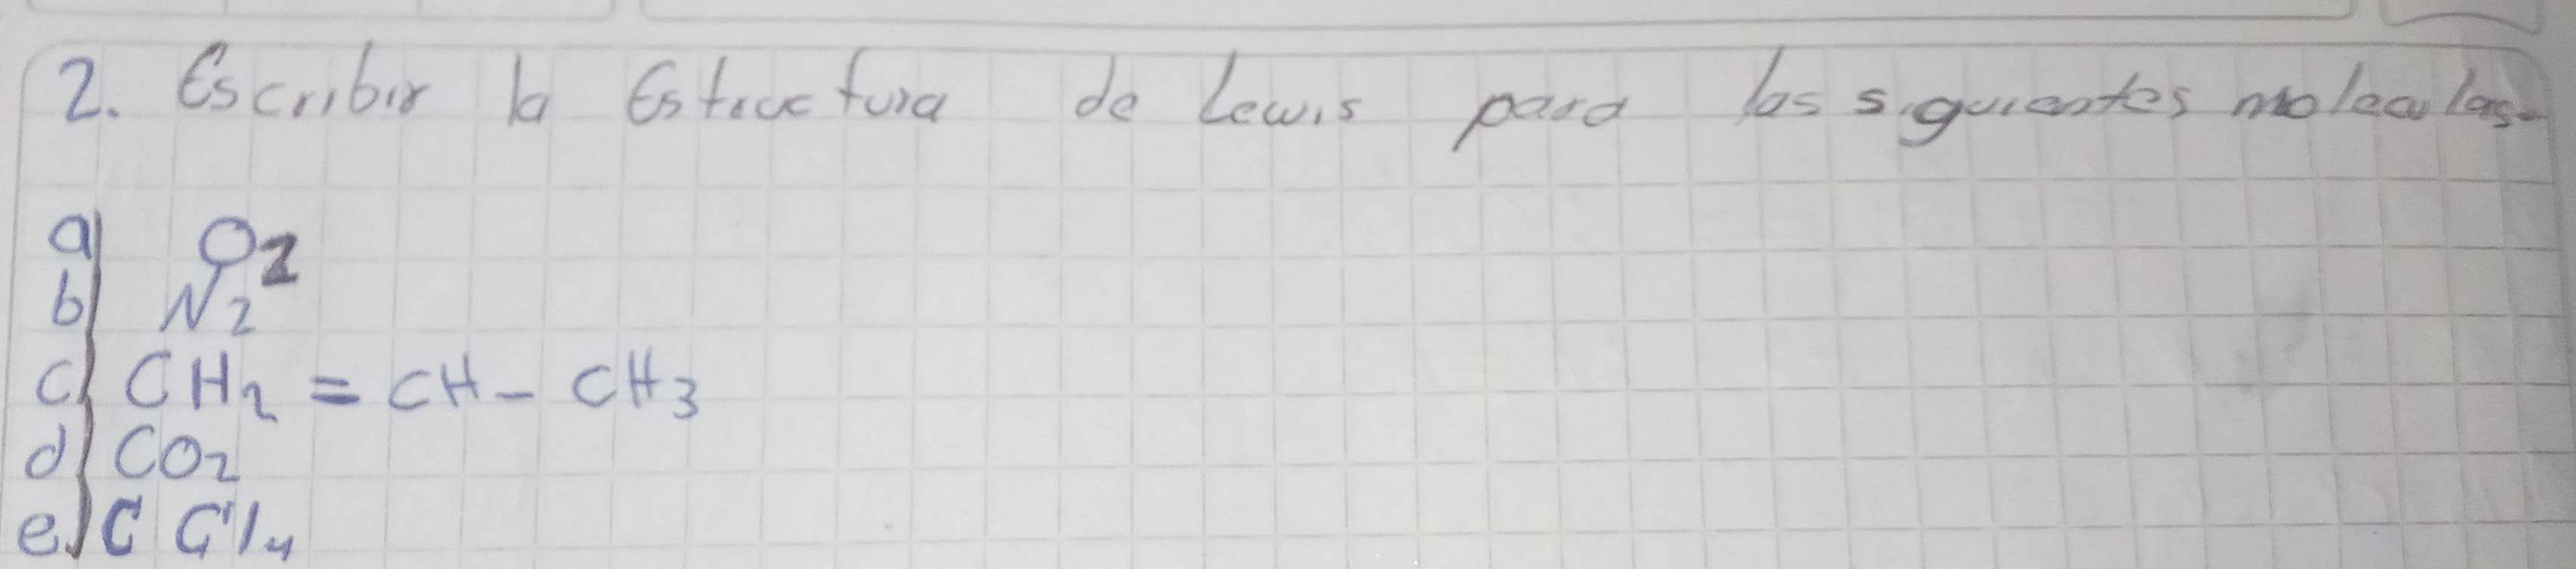 2. Escribir la Estructura de Lewis para las siguientes moleculas.
a) O2
b) N2
c) CH2 = CH - CH3
d) CO2
e) C Cl4